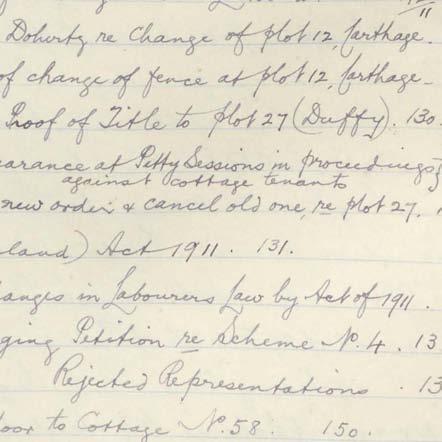 12/11
Doherty re Change of plot 12, Carthage.
of change of fence at plot 12, Carthage -
Proof of Title to plot 27 (Duffy). 130.
earance at Petty Sessions in proceedings
against cottage tenants
new order & cancel old one, re plot 27.
land) Act 1911. 131.
hanges in Labourers Law by Act of 1911.
ging Petition re Scheme No. 4. 13
Rejected Representations . 13
door to Cottage No. 58. 150.